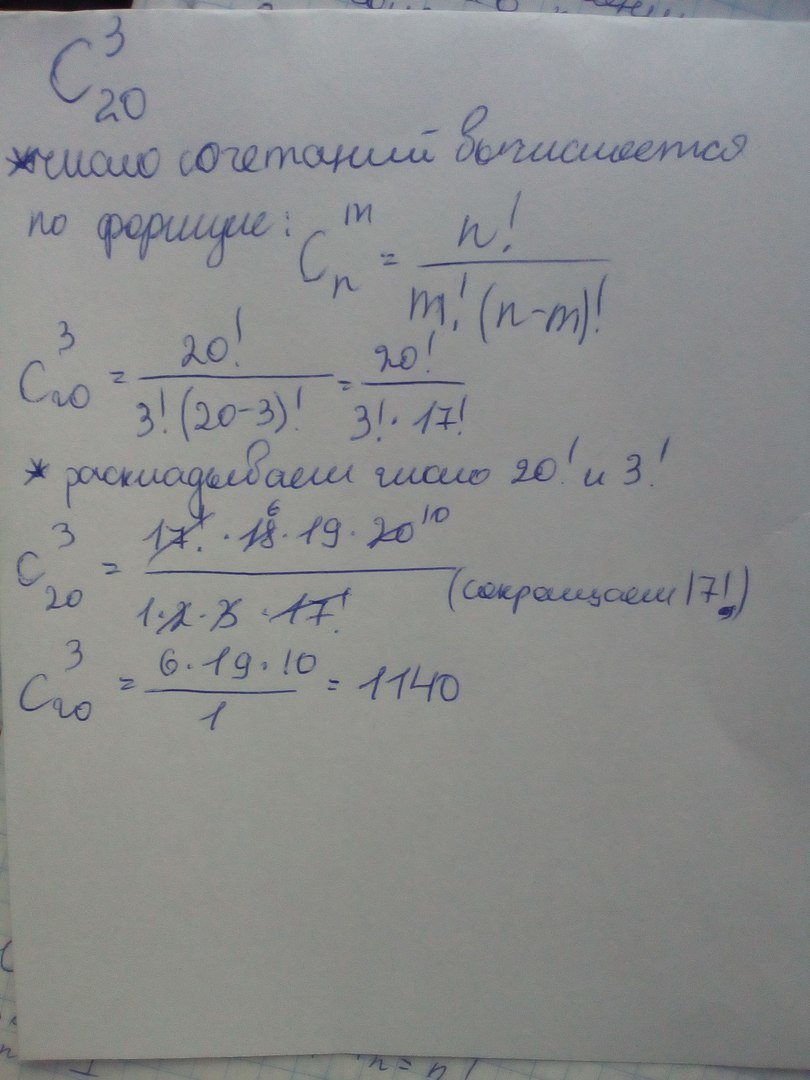 C₂₀³
*число сочетаний вычисляется
по формуле: Cₙᵐ = n! / m!(n-m)!
C₂₀³ = 20! / 3!(20-3)! = 20! / 3! · 17!
* раскладываем число 20! и 3!
C₂₀³ = 17! · 18⁶ · 19 · 20¹⁰ / 1 · 2 · 3 · 17! (сокращаем 17!)
C₂₀³ = 6 · 19 · 10 / 1 = 1140
n = n!